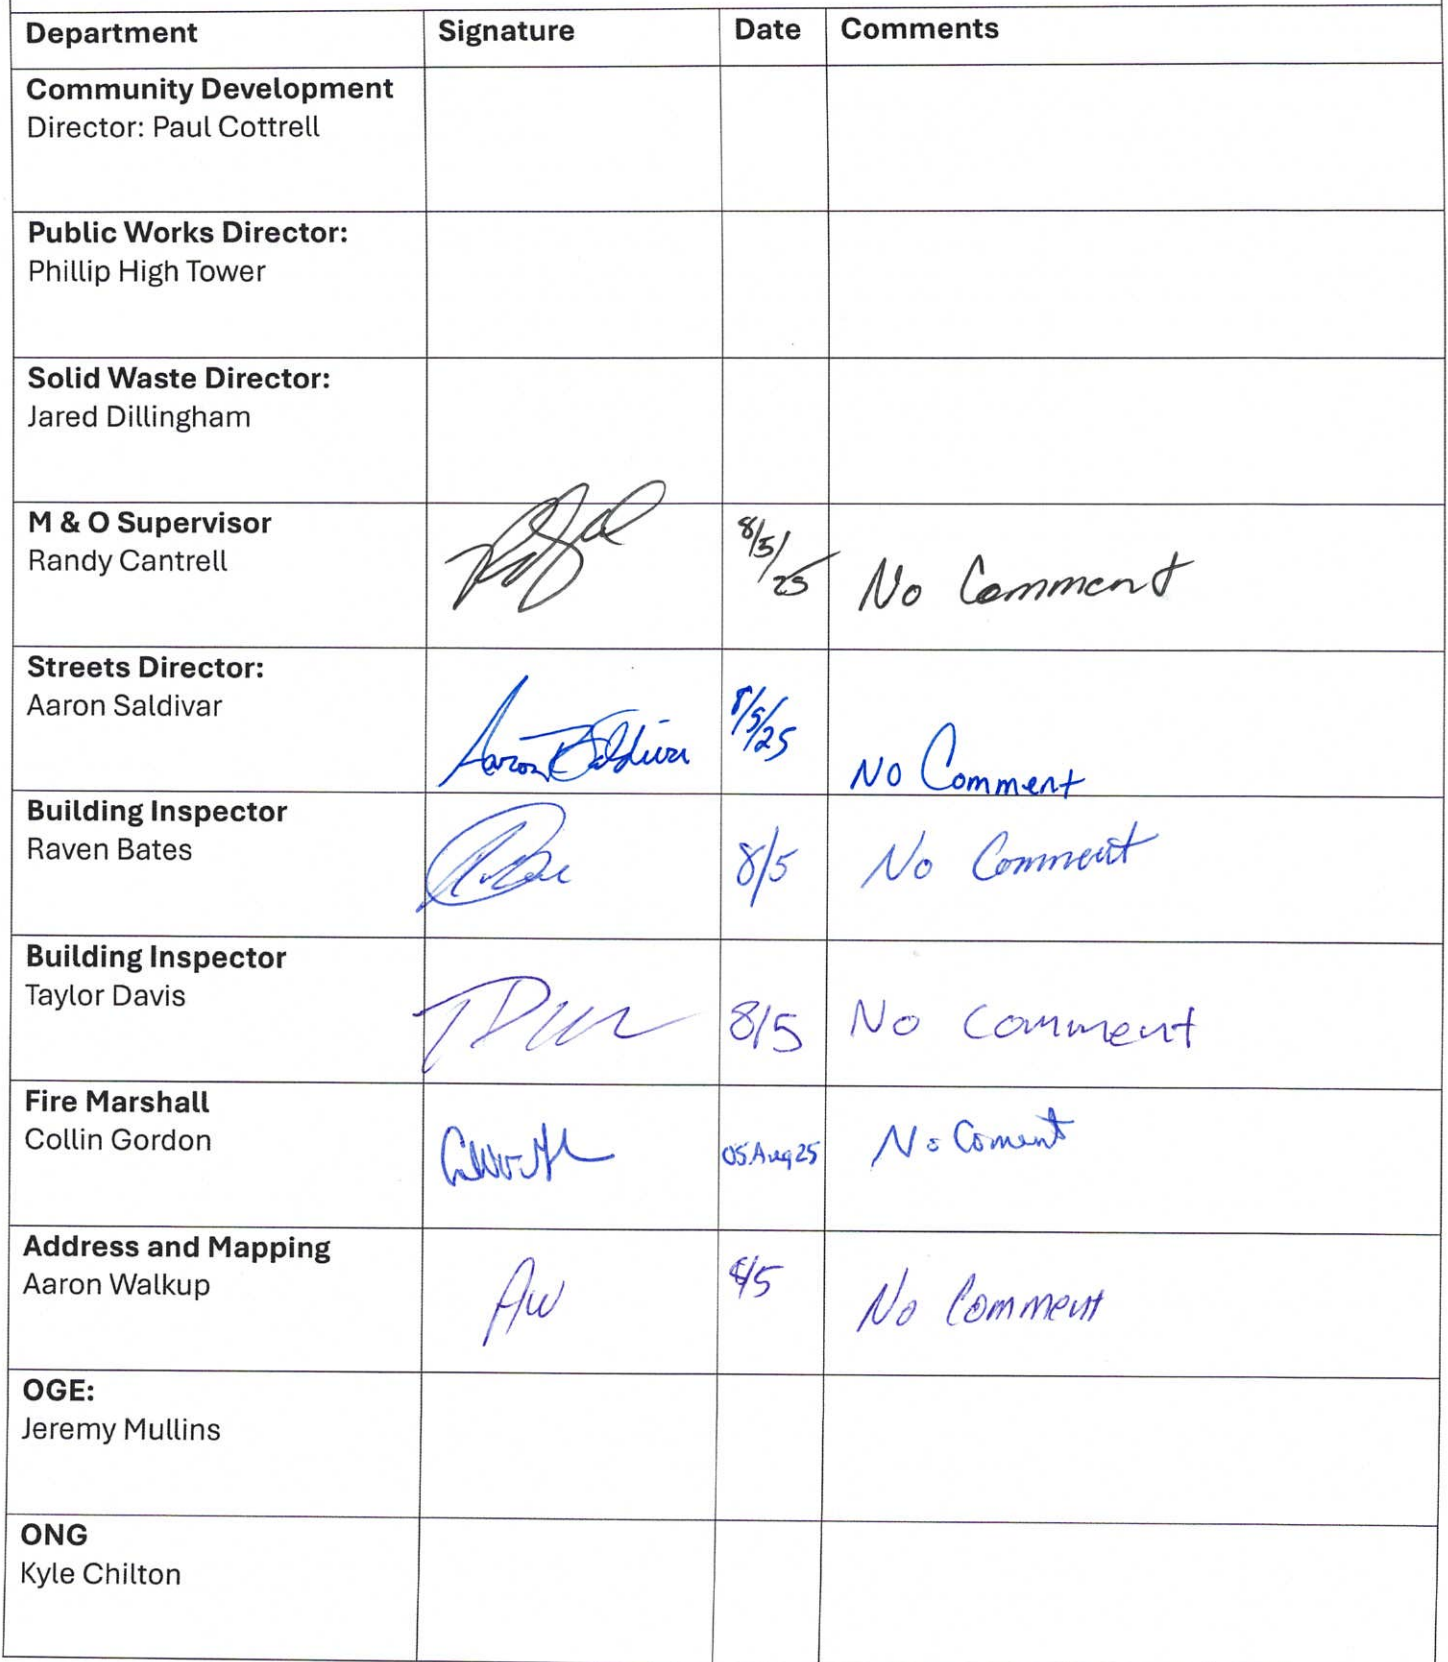 Department Signature Date Comments
Community Development
Director: Paul Cottrell
Public Works Director:
Phillip High Tower
Solid Waste Director:
Jared Dillingham
M & O Supervisor
Randy Cantrell
8/5/25 No Comment
Streets Director:
Aaron Saldivar
Aaron Saldivar 8/5/25 No Comment
Building Inspector
Raven Bates
8/5 No Comment
Building Inspector
Taylor Davis
8/5 No Comment
Fire Marshall
Collin Gordon
05Aug25 No Coment
Address and Mapping
Aaron Walkup
AW 8/5 No Comment
OGE:
Jeremy Mullins
ONG
Kyle Chilton